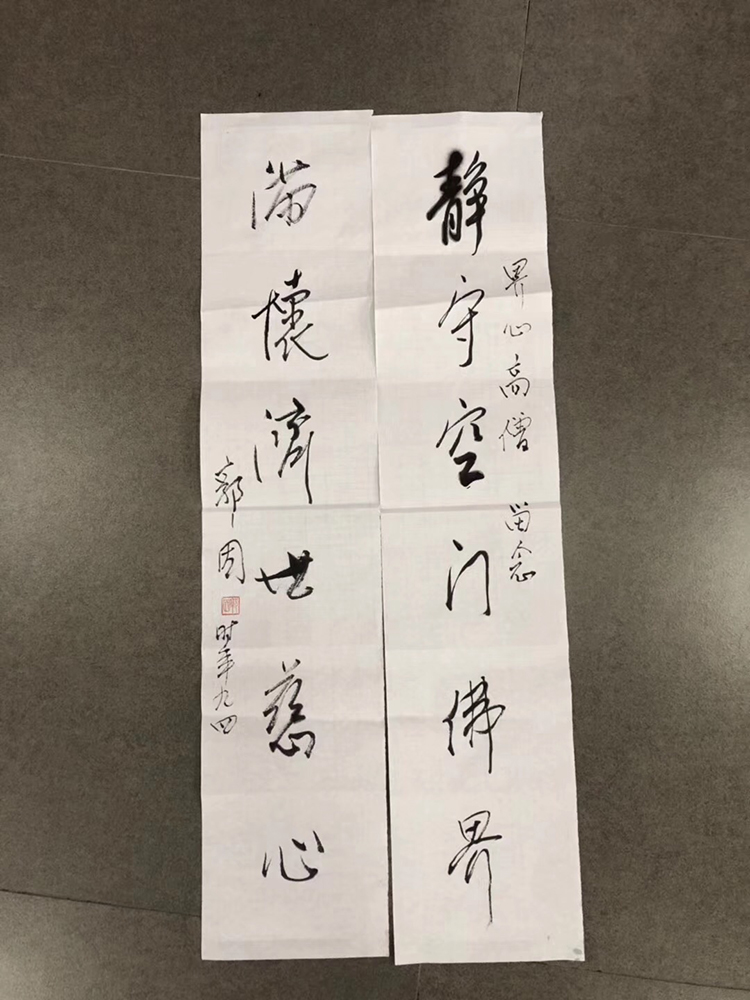 静守空门佛界
界心高僧 留念
满懷濟世慈心
郭周
时年九四